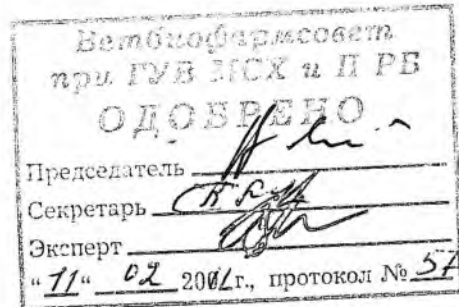 Ветбиофармсовет
при ГУВ МСХ и П РБ
ОДОБРЕНО
Председатель
Секретарь
Эксперт
"11" 02 г., протокол №